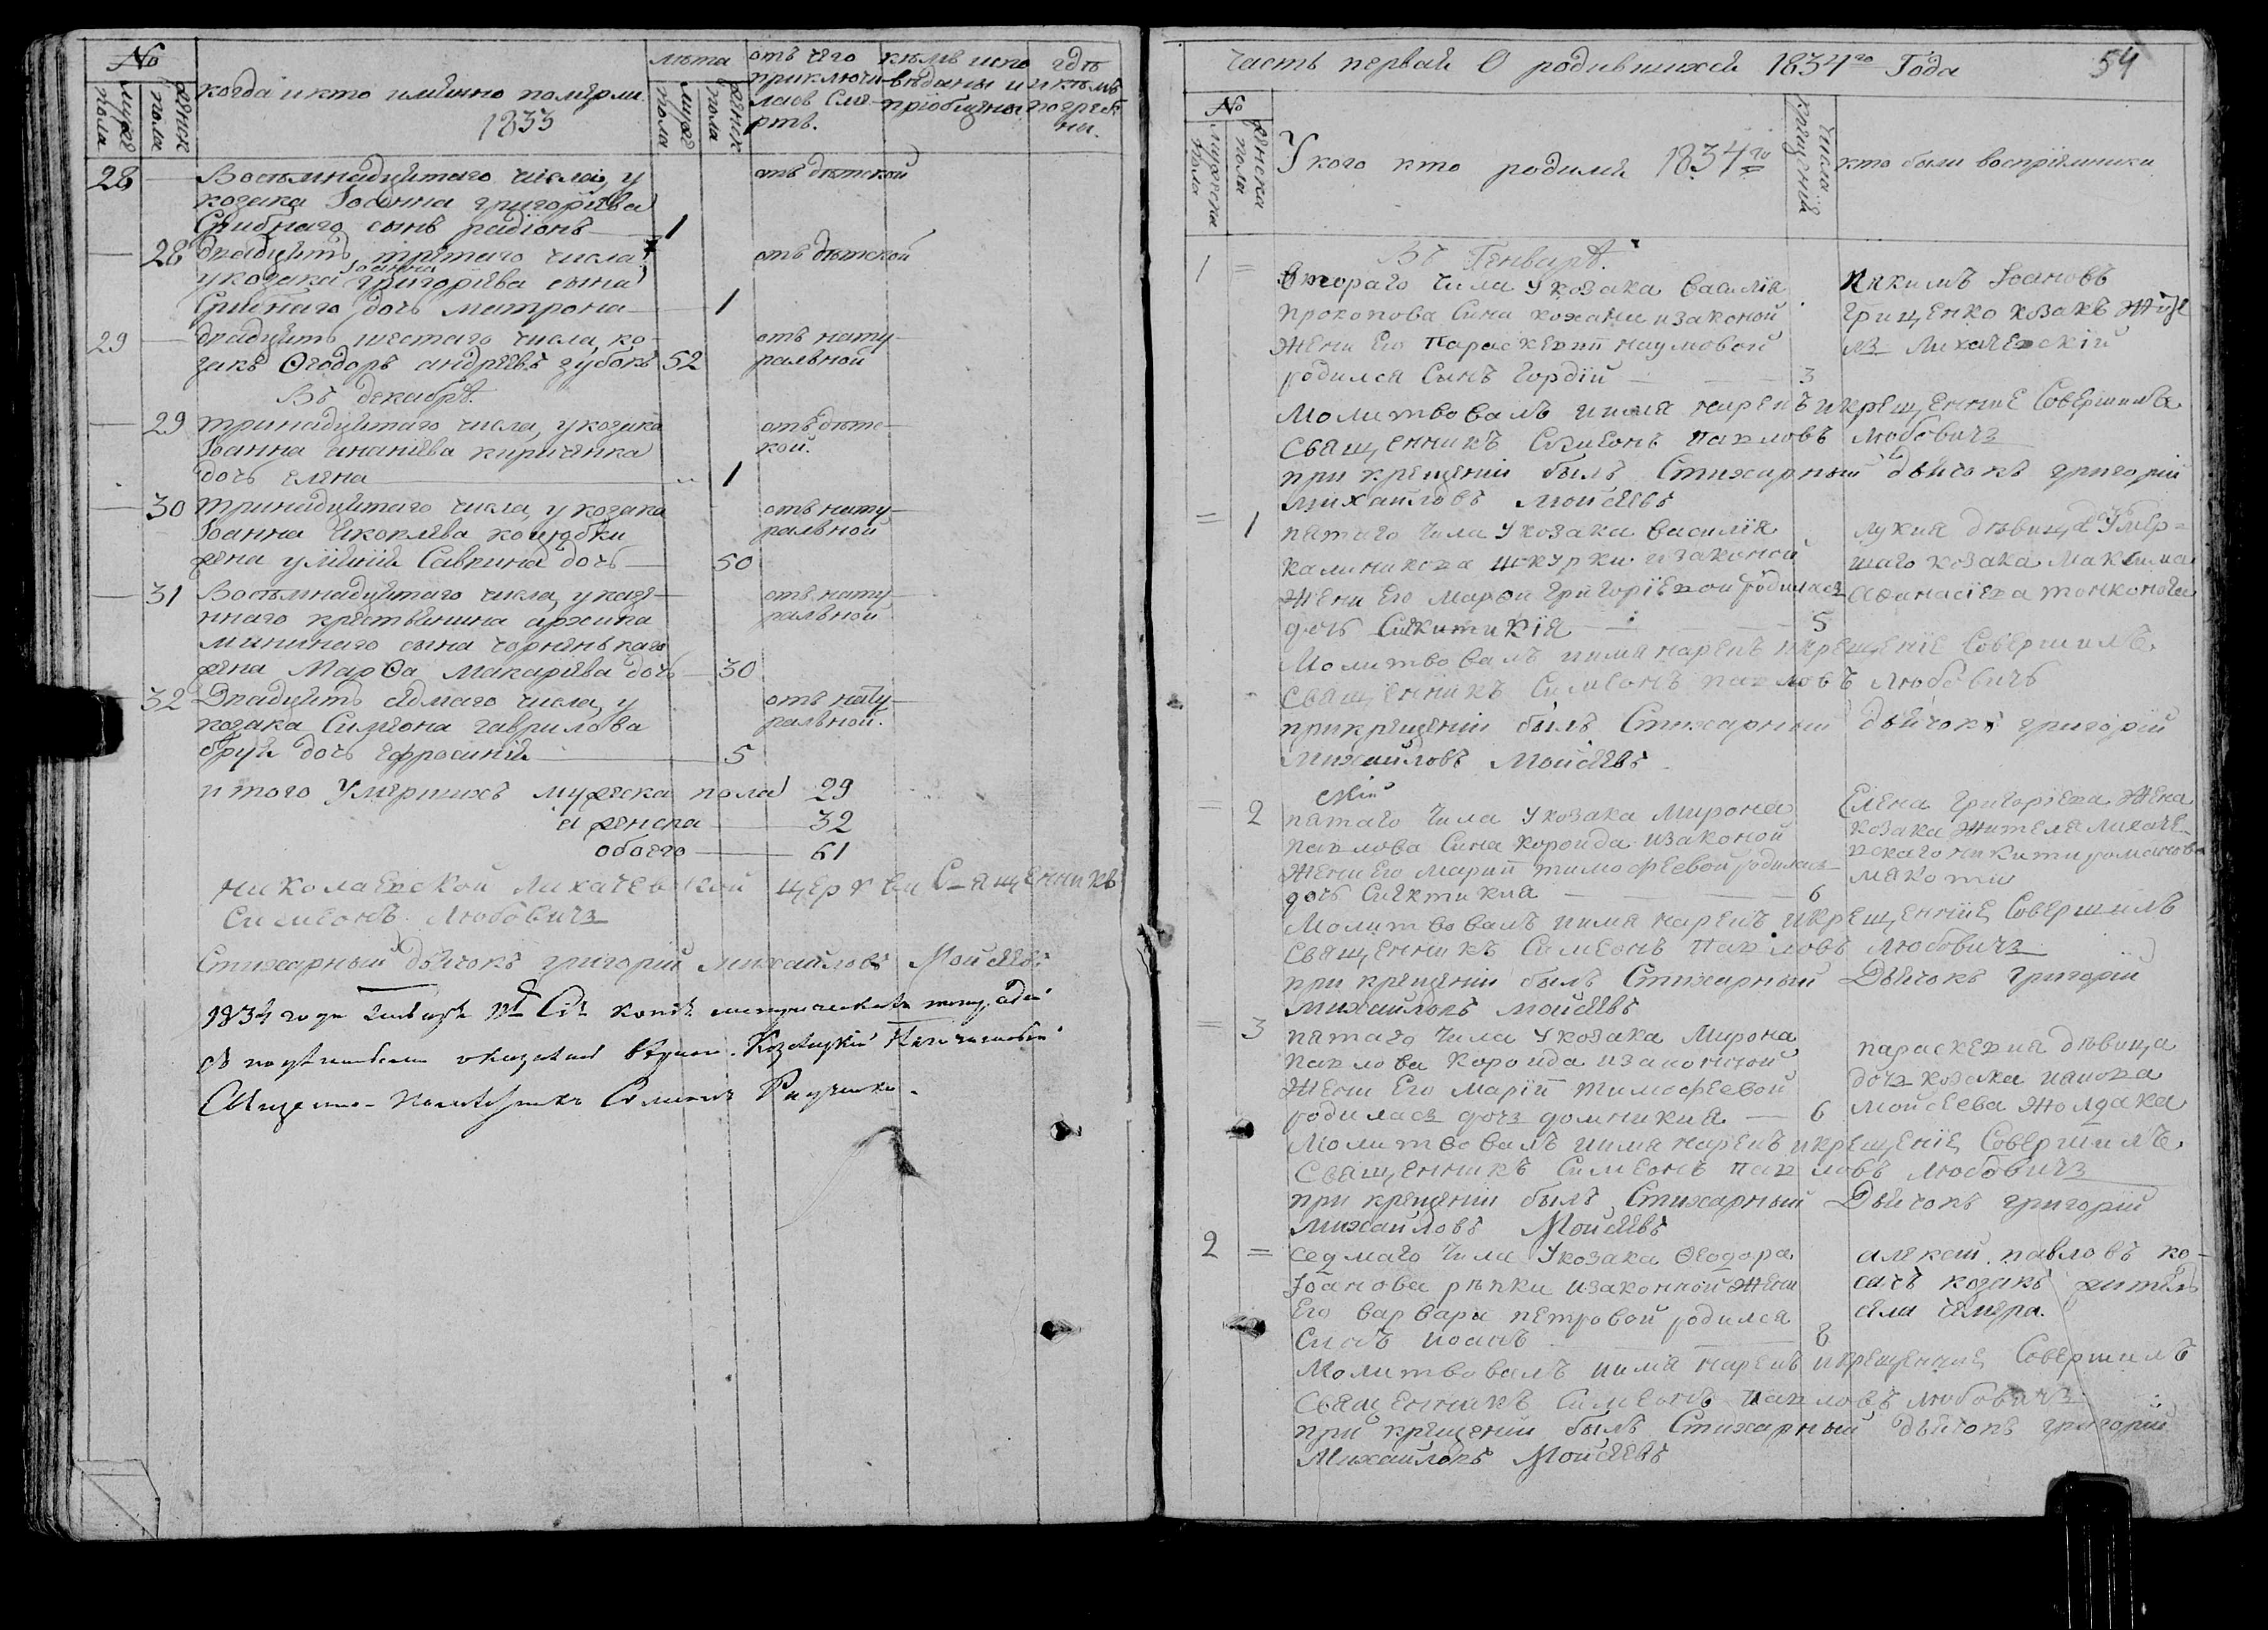 №
мужс пола
женск пола
когда и кто имянно померли
1833
лѣта
мужс пола
женск пола
отъ чего
приключи-
лась сме-
рть.
кѣмъ испо
вѣданы и
пріобщены
гдѣ
и кѣмъ
погреб
ны.
28 — Восѣмнадцятаго числа, у
козака Іоанна григоріева
сынъ радіонъ — 1
отъ дѣтской
— 28 Двадцять третаго числа
у козака Іоанна григоріева сына
дочь матрона — 1
отъ дѣтской
29 — двадцять шестаго числа, ко-
закъ Ѳеодоръ андреевъ зубокъ 52
отъ нату-
ральной
Въ декабрѣ.
— 29 тринадцятаго числа, у козака
Іоанна ананіева кириченка
дочь елена — 1
отъ дѣтс-
кой.
— 30 тринадцятаго числа, у козака
Іоанна Яковлева
жена Савкина дочь — 50
отъ нату-
ральной
— 31 Восѣмнадцятаго числа, у казе-
ннаго крестьянина архипа
сына чорненькаго
жена Марѳа Макаріева дочь — 30
отъ нату-
ральной
— 32 Двадцять седмаго числа, у
козака Симеона гаврилова
дочь ефросинія — 5
отъ нату-
ральной.
итого умершихъ мужеска пола 29
а женска — 32
обоего — 61
николаевской лихачевской церкви Священникъ
Симеонъ Любовичъ
Стихарный дьячокъ григорій михайловъ Мойсеевъ
1834 года
Симеонъ
54
Часть первая О родившихся 1834го Года
№
мужеска пола
женска пола
У кого кто родился 1834го
Числа крещеній
кто были воспріемники
Въ Генварѣ.
1 = Втораго Чила У козака Василія
прокопова Сина кожами и законой
жени Его Параскевіи наумовой
родился Сынъ Гордій — 3
Якимъ Іоановъ
Грищенко козакъ жите
ль Лихачевскій
Молитвовалъ и имя нарекъ и крещенние Совершилъ
Священникъ Симеонъ Павловъ Любовичъ
при крещеніи былъ Стихарный дьячокъ григорій
михайловъ мойсеевъ
= 1 пятаго Чила У козака Василія
Калиникова шкурки и законой
жени Его Марѳи Григоріевой родилась
дочь Синкликикія — 5
лукия дѣвица Умер-
шаго козака Максима
Аѳанасіева тонконога
Молитвовалъ и имя нарекъ и крещеніе Совершилъ.
Священникъ Симеонъ Павловъ Любовичъ
при крещеніи былъ Стихарный дьячокъ григорій
Михайловъ Мойсеевъ
скій
= 2 пятаго Чила У козака Мирона
павлова Сина короида и законой
жени Его Маріи тимофеевой родилась
дочь Синкликия — 6
Елена Григоріева жена
козака жителя Лихаче-
вскаго никити романова
мякоти
Молитвовалъ и имя нарекъ и крещенніе Совершилъ
Священникъ Симеонъ Павловъ Любовичъ
при крещеніи былъ Стихарный Дьячокъ григорій
Михайловъ Мойсеевъ
= 3 пятаго Чила У козака Мирона
павлова короида и законной
жени Его Маріи тимофеевой
родилась дочъ домникия — 6
параскевия дѣвица
дочъ козака
мойсеева жолдака
Молитвовалъ и имя нарекъ и крещеніе Совершилъ.
Священникъ Симеонъ Павловъ Любовичъ
при крещеніи былъ Стихарный Дьячокъ григорій
Михайловъ Мойсеевъ
2 = Седмаго Чила У козака Ѳеодора
Іоанова рѣпки и законной жени
Его варвари петровой родился
Синъ иоанъ — 8
алексій павловъ ко-
сачъ козакъ житель
села чемера.
Молитвовалъ и имя нарекъ и крещенние Совершилъ
Священникъ Симеонъ Павловъ Любовичъ
при крещеніи былъ Стихарный дьячокъ григорій
Михайловъ Мойсеевъ